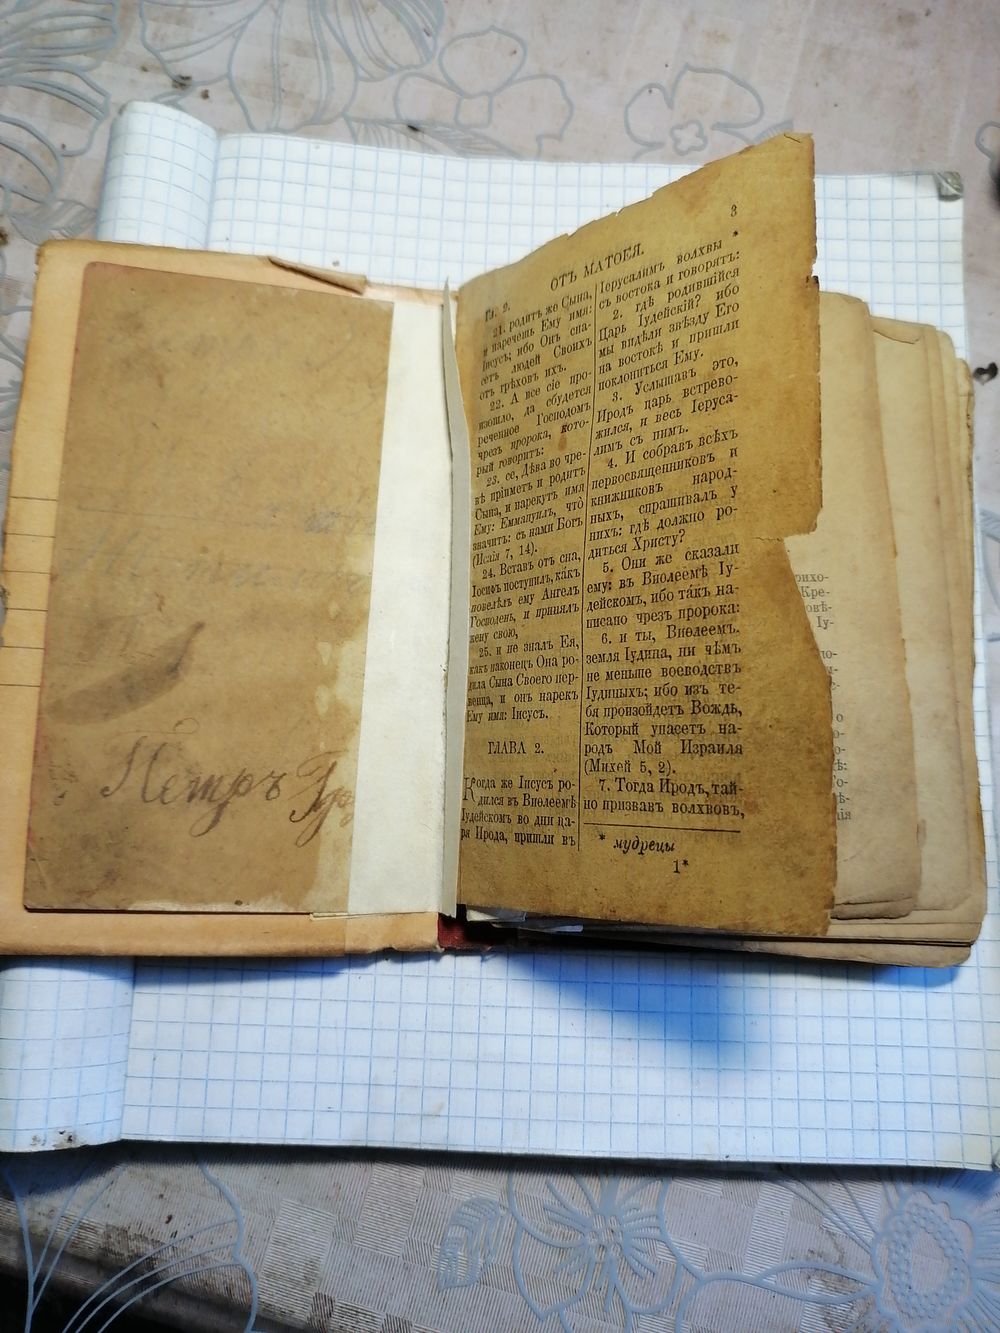 Петръ
3
Гл. 2.
ОТЪ МАТѲЕЯ.
21. родитъ же Сына,
и наречешь Ему имя:
Іисусъ; ибо Онъ спа-
сетъ людей Своихъ
отъ грѣховъ ихъ.
22. А все сіе про-
изошло, да сбудется
реченное Господомъ
чрезъ пророка, кото-
рый говоритъ:
23. се, Дѣва во чре-
вѣ пріиметъ и родитъ
Сына, и нарекутъ имя
Ему: Еммануилъ, что̀
значитъ: съ нами Богъ
(Исаія 7, 14).
24. Вставъ отъ сна,
Іосифъ поступилъ, ка́къ
повелѣлъ ему Ангелъ
Господень, и принялъ
жену свою,
25. и не зналъ Ея,
какъ наконецъ Она ро-
дила Сына Своего пер-
венца, и онъ нарекъ
Ему имя: Іисусъ.
ГЛАВА 2.
Когда же Іисусъ ро-
дился въ Виѳлеемѣ
Іудейскомъ во дни ца-
ря Ирода, пришли въ
Іерусалимъ волхвы *
съ востока и говорятъ:
2. гдѣ родившійся
Царь Іудейскій? ибо
мы видѣли звѣзду Его
на востокѣ и пришли
поклониться Ему.
3. Услышавъ это,
Иродъ царь встрево-
жился, и весь Іеруса-
лимъ съ нимъ.
4. И собравъ всѣхъ
первосвященниковъ и
книжниковъ народ-
ныхъ, спрашивалъ у
нихъ: гдѣ должно ро-
диться Христу?
5. Они же сказали
ему: въ Виѳлеемѣ Іу-
дейскомъ, ибо та́къ на-
писано чрезъ пророка:
6. и ты, Виѳлеемъ,
земля Іудина, ни чѣмъ
не меньше воеводствъ
Іудиныхъ; ибо изъ те-
бя произойдетъ Вождь,
Который упасетъ на-
родъ Мой Израиля
(Михей 5, 2).
7. Тогда Иродъ, тай-
но призвавъ волхвовъ,
* мудрецы
1*